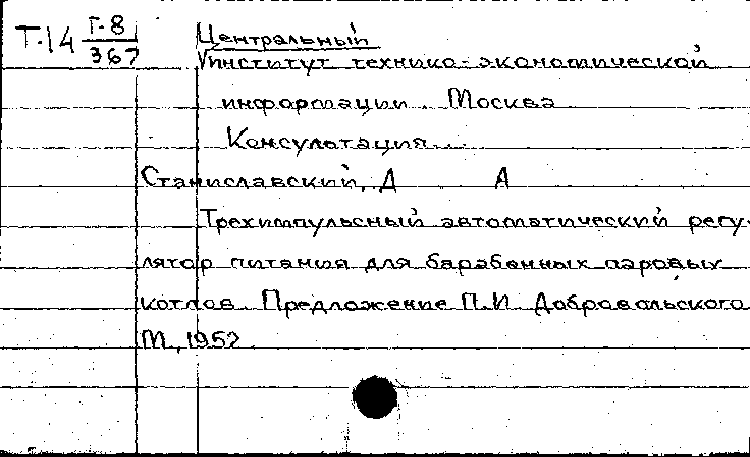 Т-14 Г-8
367
Центральный
институт технико-экономической
информации. Москва
Консультация...
Станиславский, Д А
Трехимпульсный автоматический регу-
лятор питания для барабанных паровых
котлов. Предложение П.И. Добровольского
М., 1952